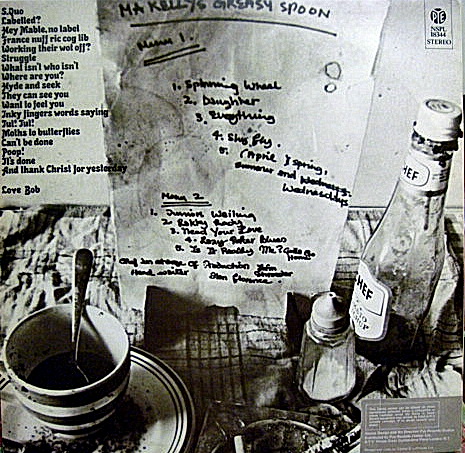 S.Quo
Labelled?
Hey Mable, no label
France nuff ric cog lib
Working their wol off?
Struggle
What isn't who isn't
Where are you?
Hyde and seek
They can see you
Want lo feel you
Inky fingers words saying
Tut! Tut!
Moths lo butterflies
Can't be done
Poop!
It's done
And thank Christ for yesterday
Love Bob
MA KELLYS GREASY SPOON
Menu 1.
1. Spinning Wheel
2. Daughter
3. Everything
4. Shy Fly.
5. (April) Spring,
Summer and Wednesdays
Wednesdays
Menu 2
1. Junior's Wailing
2. Lakky Lady
3. Need Your Love
4. Lazy Poker Blues
5. Is It Really Me? Gotta Go
Home
Chef in charge of Production John
Schroeder
Head waiter Alan Florence.
PYE
NSPL
18344
STEREO
HEF
HEF